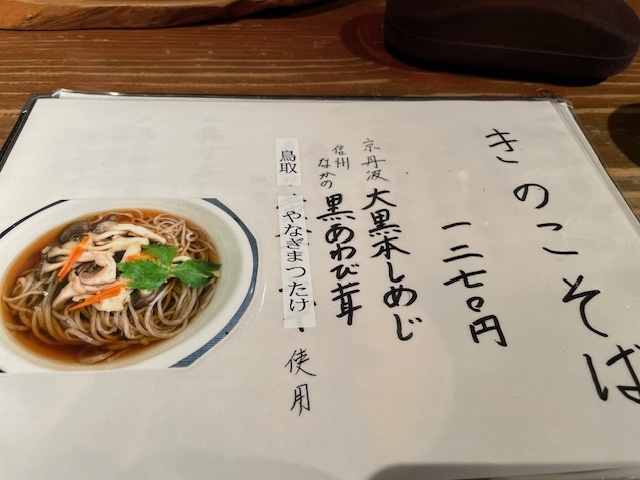 きのこそば
一二七〇円
京丹波 大黒本しめじ
信州なかの 黒あわび茸
鳥取 やなぎまつたけ 使用